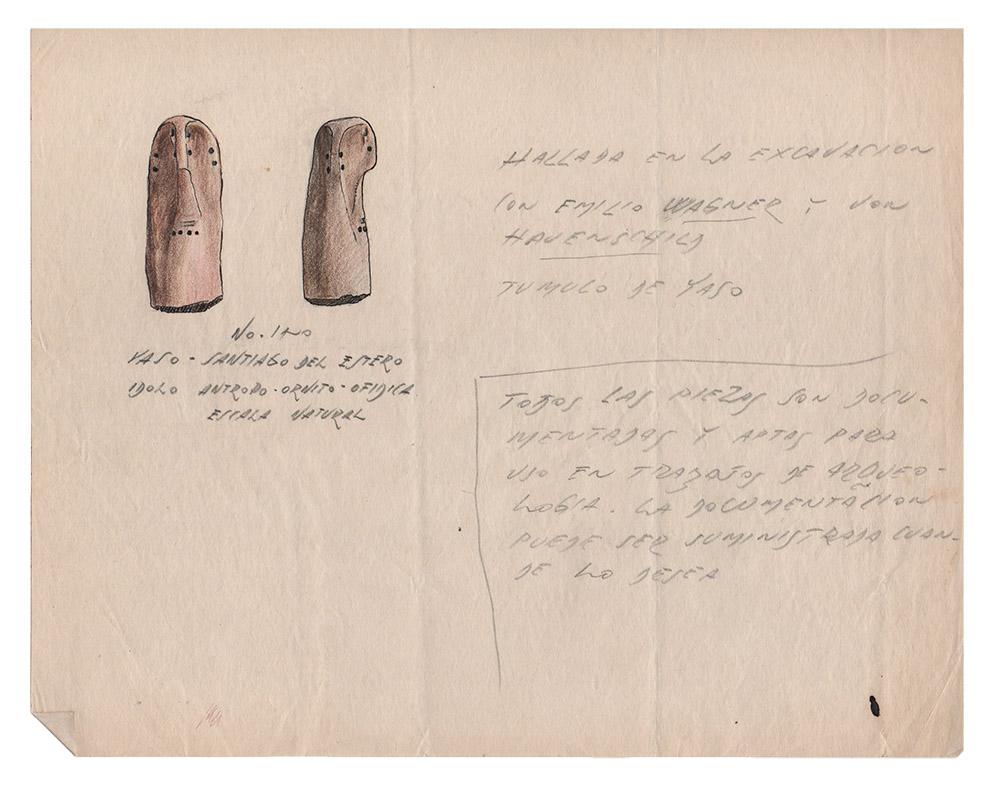 No. 1420
YASO - SANTIAGO DEL ESTERO
IDOLO ANTROPO-ORNITO-OFIDICA
ESCALA NATURAL
HALLADA EN LA EXCAVACION
CON EMILIO WAGNER Y VON
HAUENSCHILD
TUMULO DE YASO
TODOS LAS PIEZAS SON DOCU-
MENTADAS Y APTAS PARA
USO EN TRABAJOS DE ARQUEO-
LOGIA. LA DOCUMENTACION
PUEDE SER SUMINISTRADA CUAN-
DE LO DESEA